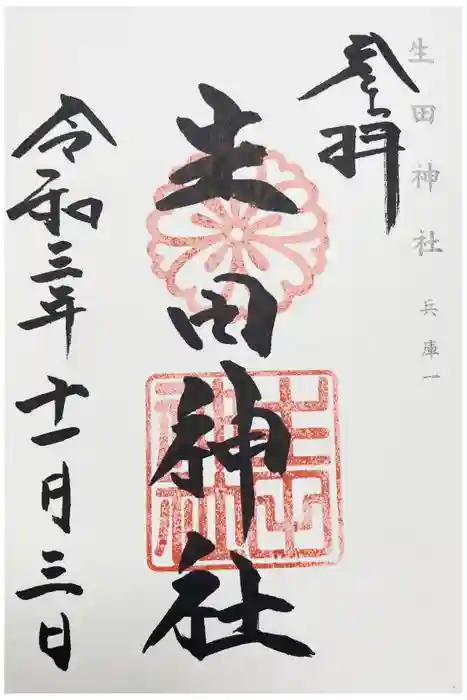 生田神社 兵庫一
参拝
生田神社
令和三年十一月三日
生田神社